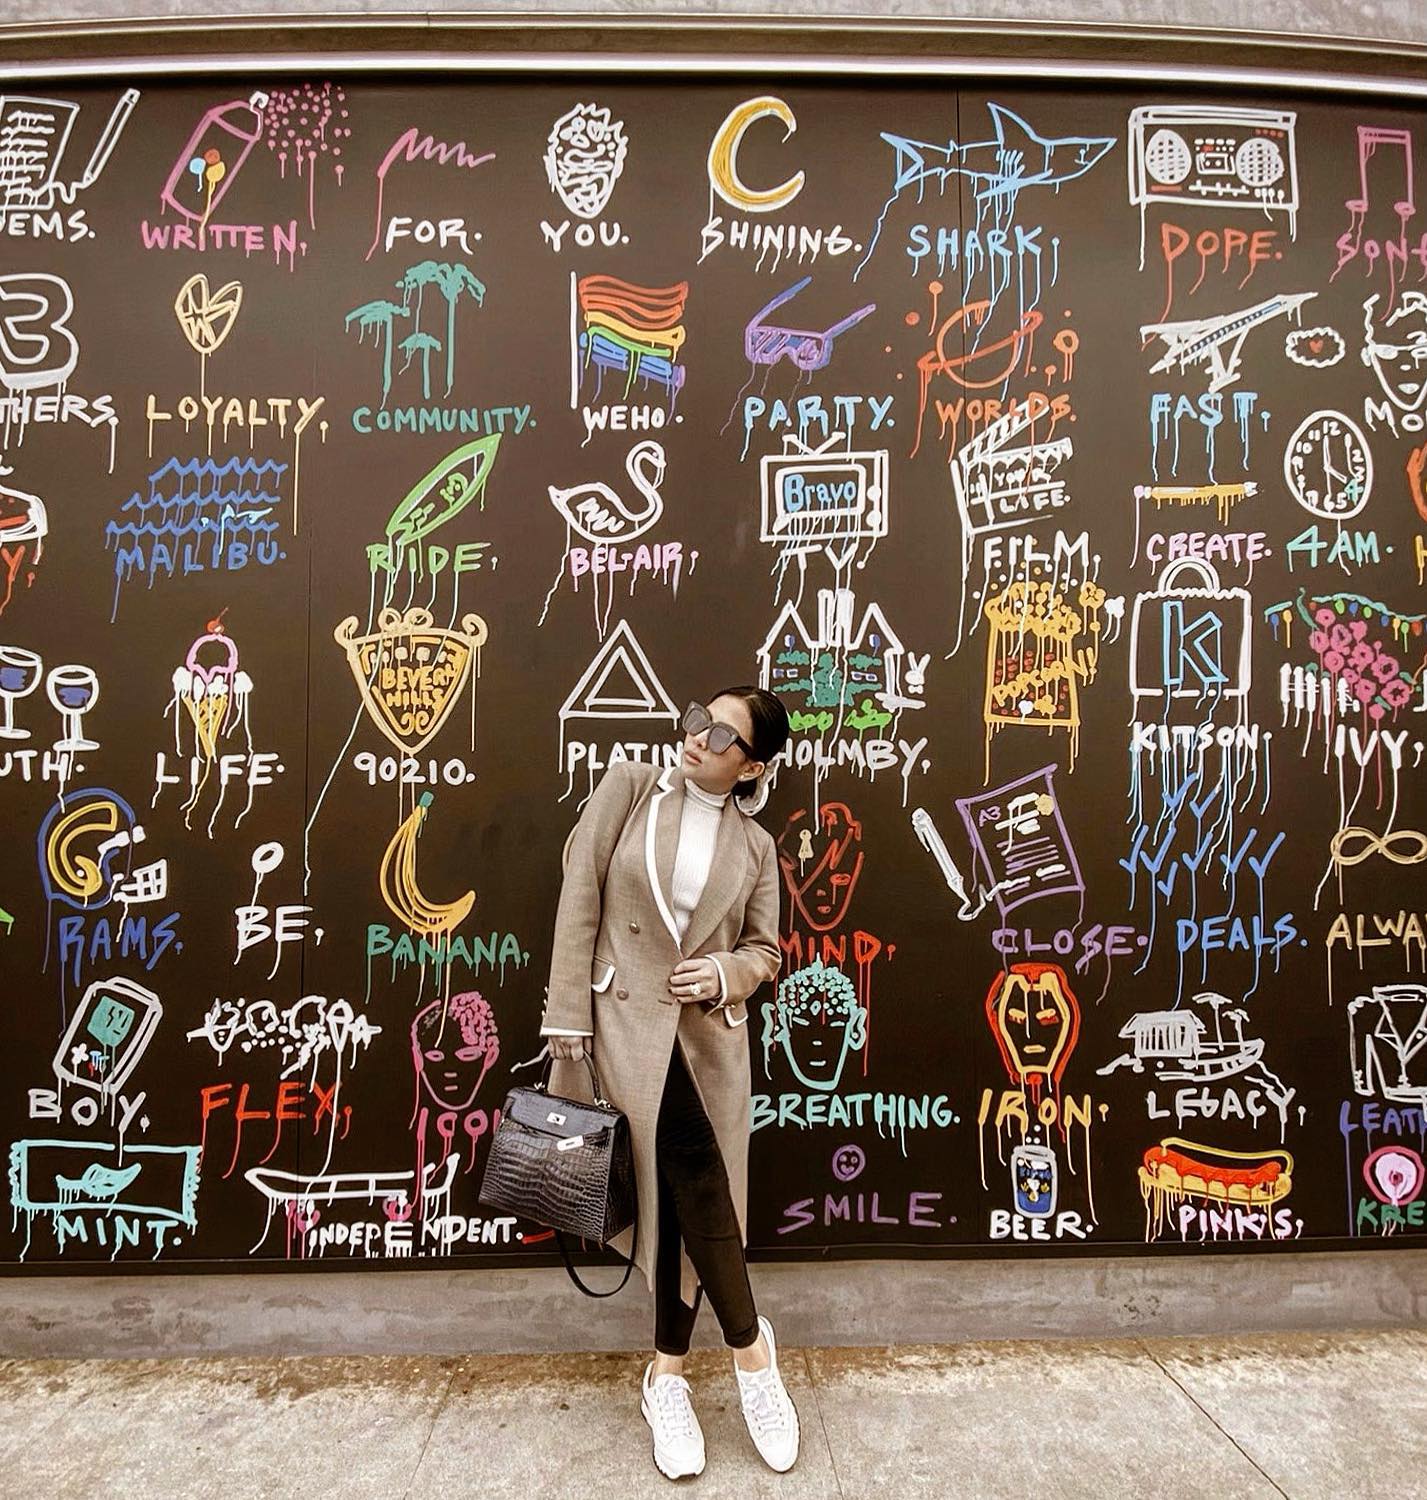 EMS. WRITTEN. FOR. YOU. SHINING. SHARK. DOPE. SONG
3
THERS. LOYALTY. COMMUNITY. WEHO. PARTY. WORLDS. FAST. MO
Bravo
YOUR
LIFE.
12
Y. MALIBU. RIDE. BEL-AIR. TV. FILM. CREATE. 4AM.
BEVERLY
HILLS
POPCORN!
K
UTH. LIFE. 90210. PLATIN HOLMBY. KITSON. IVY.
A3
RAMS. BE. BANANA. MIND. CLOSE. DEALS. ALWA
BOY. FLEX. ICON BREATHING. IRON. LEGACY. LEAT
MINT. INDEPENDENT. SMILE. BEER. PINK'S. KRE